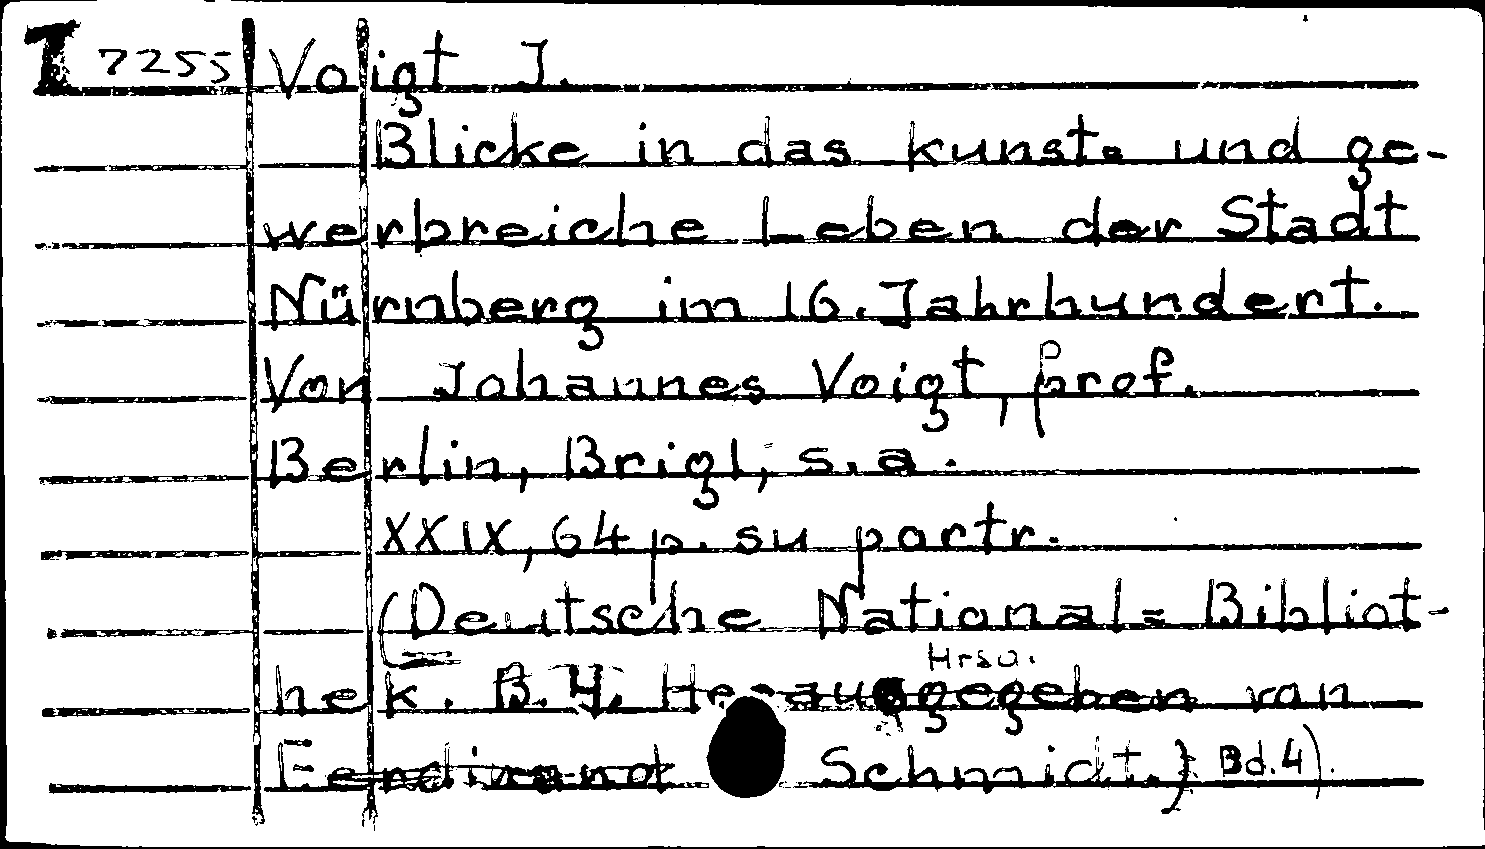 I 7255 Voigt J.
Blicke in das kunst= und ge-
werbreiche Leben der Stadt
Nürnberg im 16. Jahrhundert.
Von Johannes Voigt, prof.
Berlin, Brigl, s.a.
XXIX, 64 p. su portr.
(Deutsche National= Bibliot-
hek. B. 4. Herausgegeben Hrsg. von
Ferdinand Schmidt.) Bd.4).